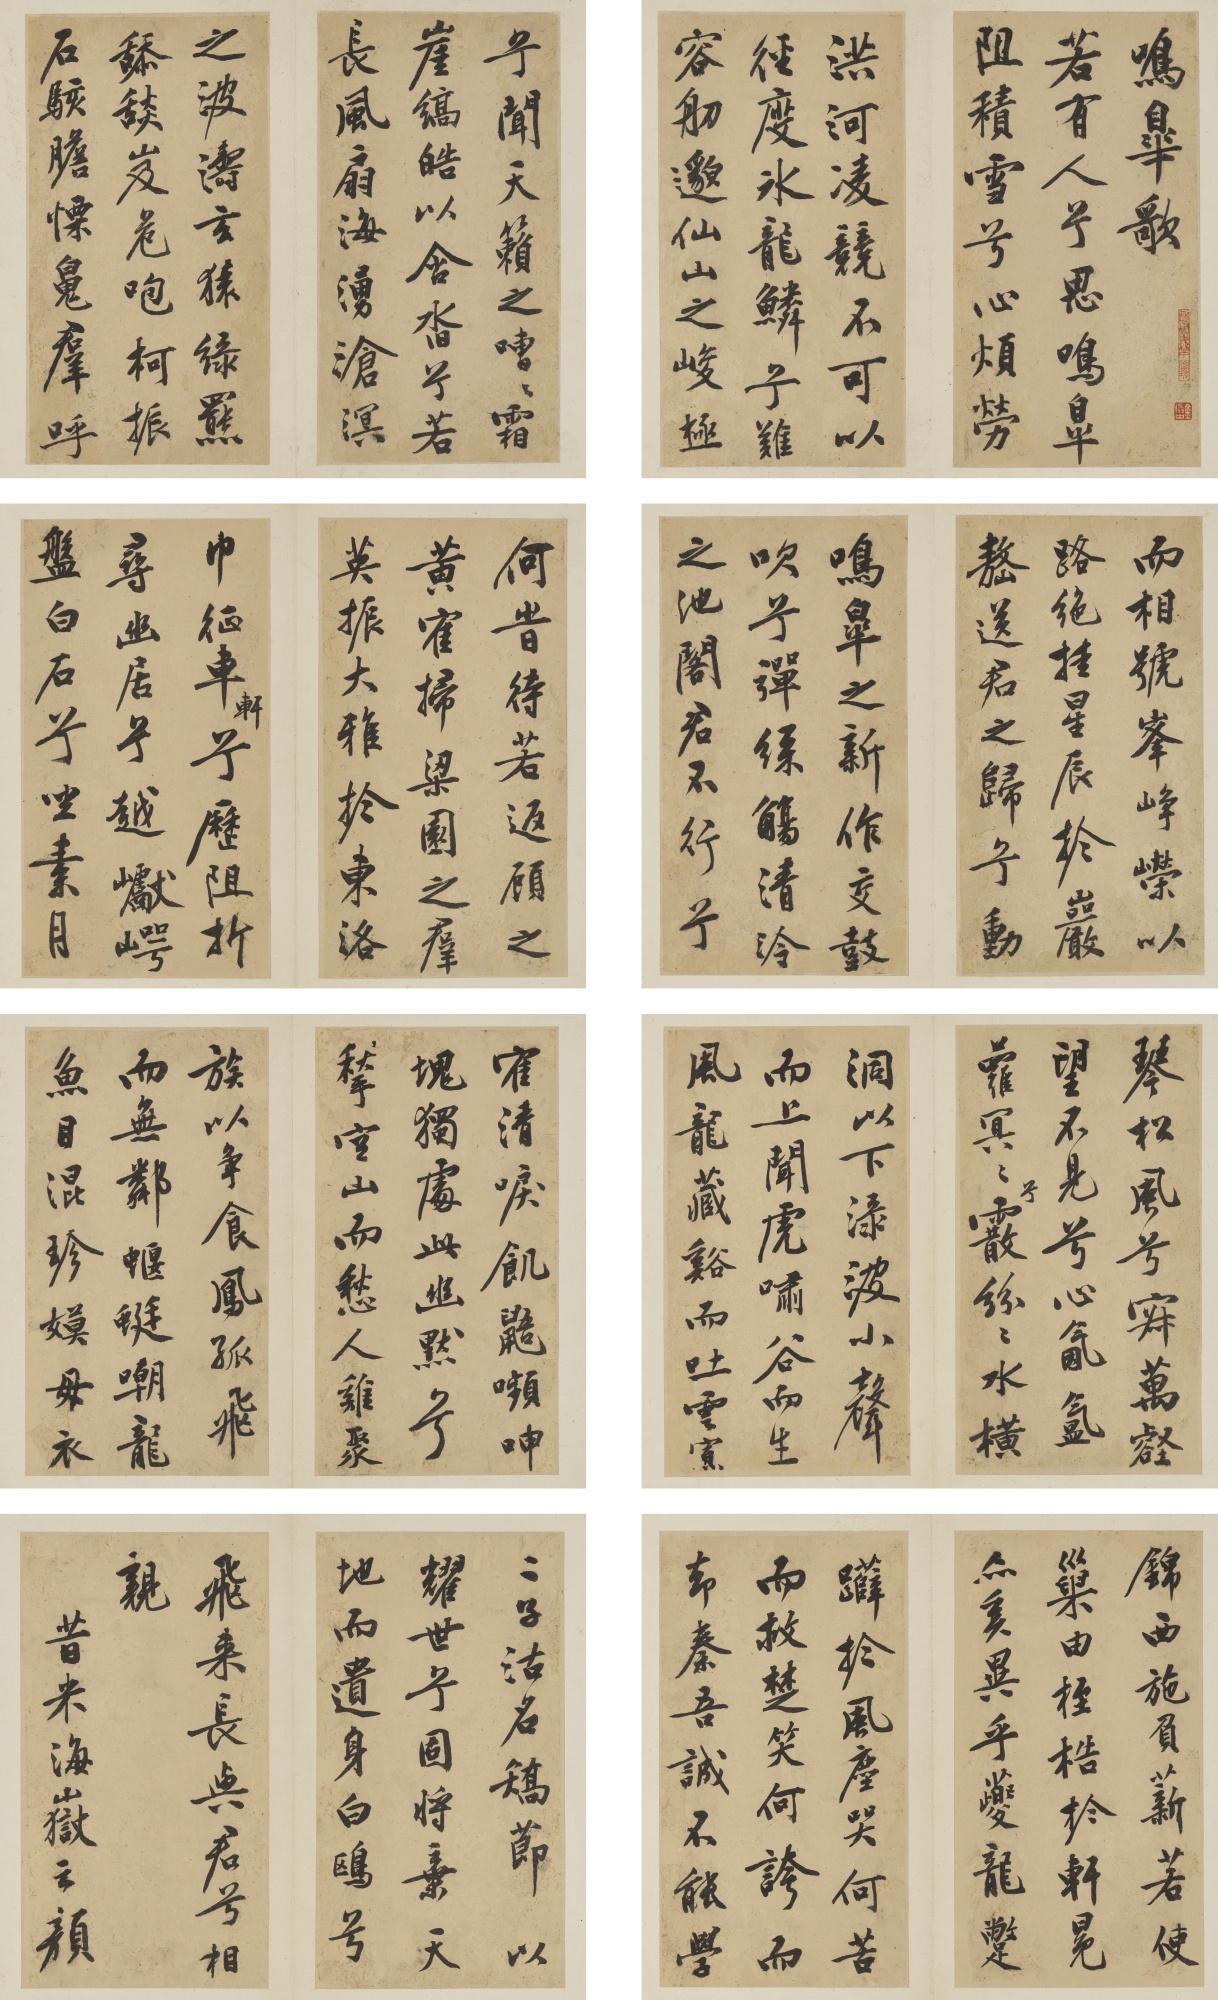 鳴皋歌
若有人兮思鳴皋
阻積雪兮心煩勞
洪河凌競不可以
徑度冰龍鱗兮難
容舠邈仙山之峻極
兮聞天籟之嘈〻霜
崖縞皓以合沓兮若
長風扇海湧滄溟
之波濤玄猿綠羆
舔舕岌危咆柯振
石駭膽慄魄羣呼
而相號峯崢嶸以
路絕挂星辰於巖
嶅送君之歸兮動
鳴皋之新作交鼓
吹兮彈絲觴清泠
之池閣君不行兮
何昔待若返顧之
黃雀掃梁園之羣
英振大雅於東洛
巾征車軒兮歷阻折
尋幽居兮越巘崿
盤白石兮坐素月
琴松風兮寂萬壑
望不見兮心氤氳
蘿冥〻兮霰紛〻水橫
洞以下淥波小聲
而上聞虎嘯谷而生
風龍藏谿而吐雲寡
寉清唳飢鼯嚬呻
塊獨處此幽默兮
愀空山而愁人雞聚
族以爭食鳳孤飛
而無鄰蝘蜓嘲龍
魚目混珍嫫母衣
錦西施負薪若使
巢由桎梏於軒冕
亦奚異乎夔龍蹩
躠於風塵哭何苦
而救楚笑何誇而
却秦吾誠不能學
二子沽名矯節以
耀世兮固將棄天
地而遺身白鷗兮
飛來長與君兮相
親
昔米海嶽云顏